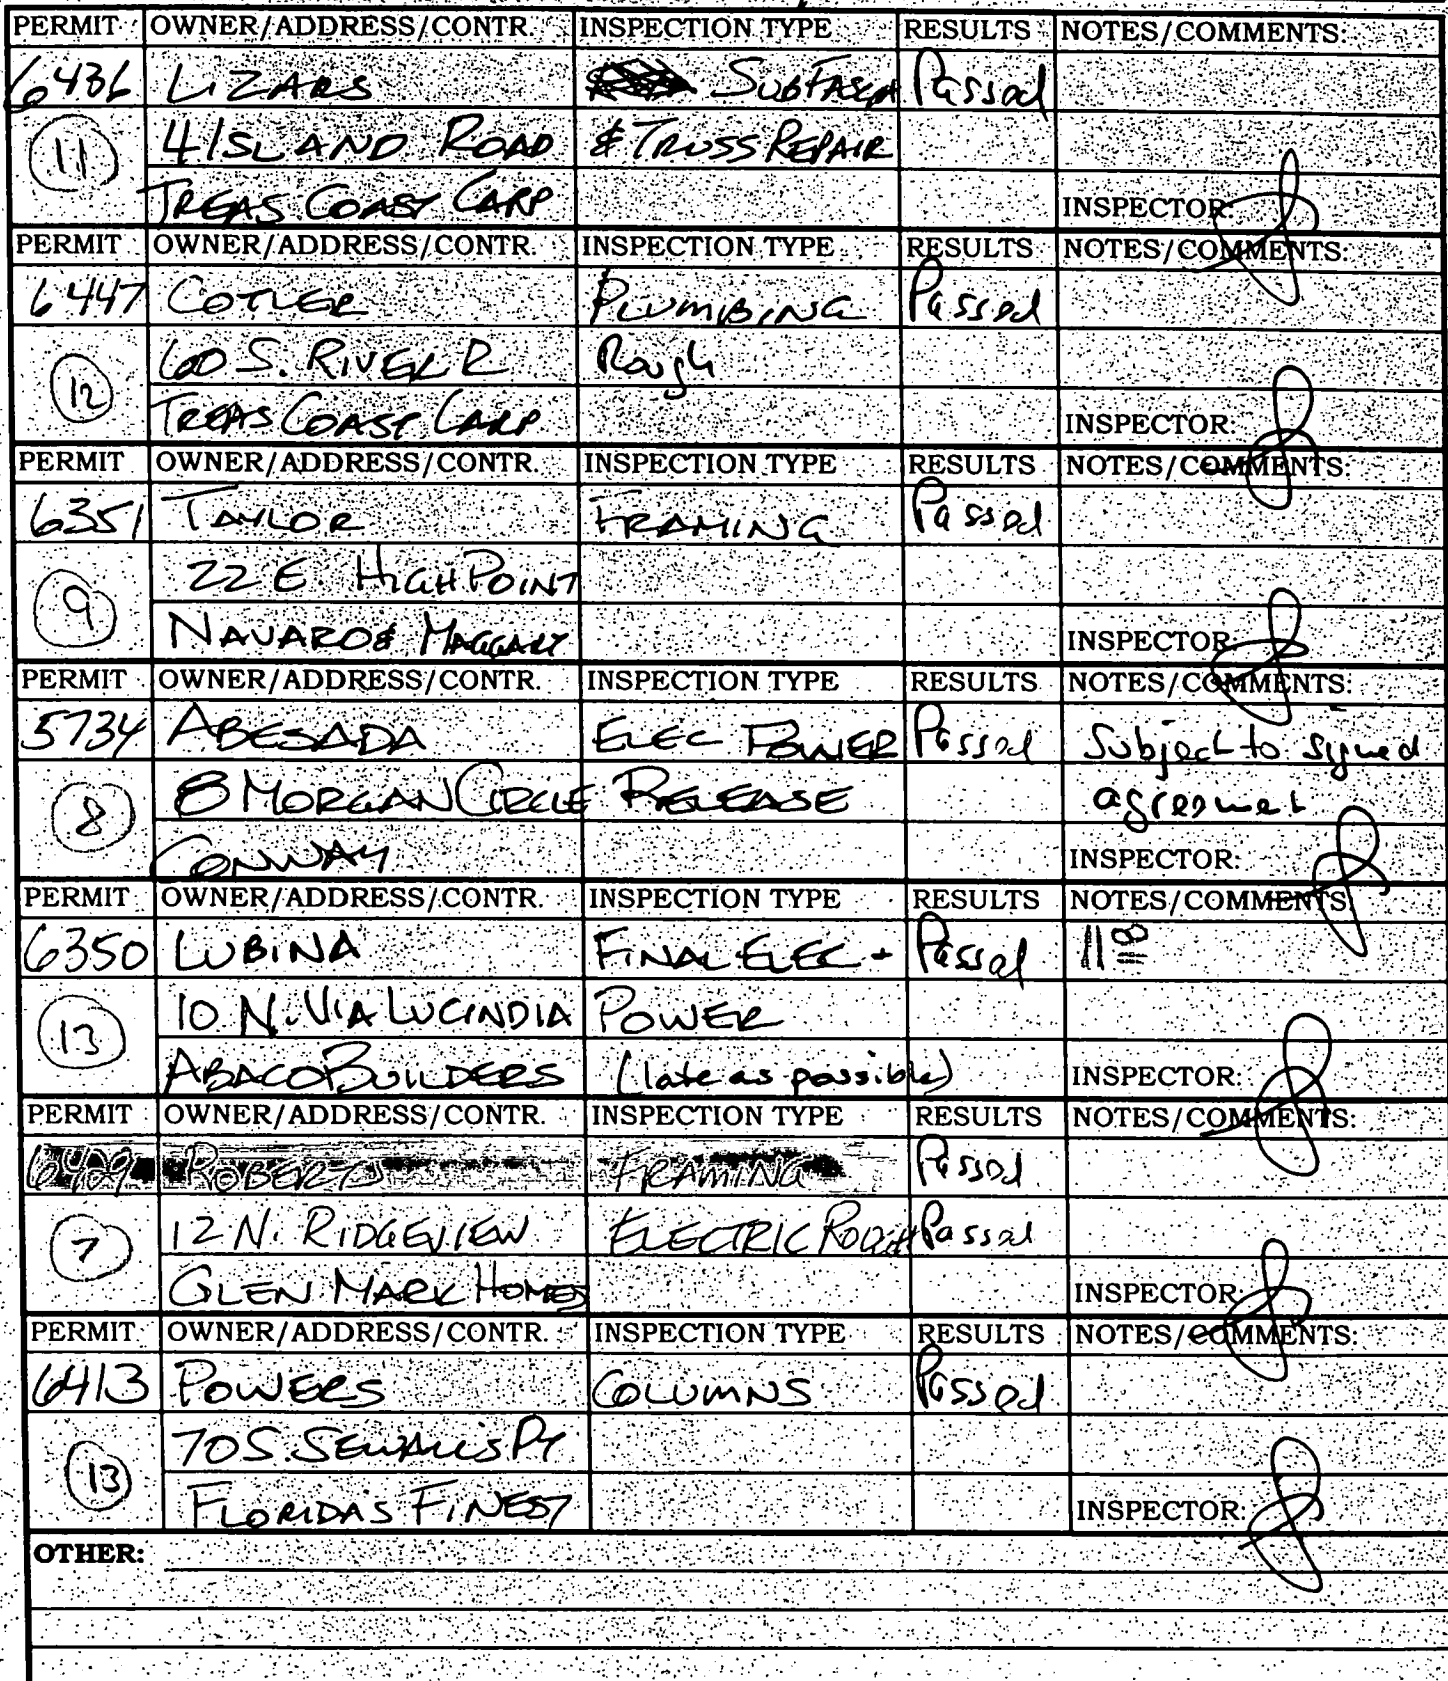 PERMIT OWNER/ADDRESS/CONTR. INSPECTION TYPE RESULTS NOTES/COMMENTS:
6436 LIZARS SUBFASCIA Passed
11 4 ISLAND ROAD & TRUSS REPAIR
TREAS COAST CARP INSPECTOR:
PERMIT OWNER/ADDRESS/CONTR. INSPECTION TYPE RESULTS NOTES/COMMENTS:
6447 COTLER PLUMBING Passed
12 60 S. RIVER R Rough
TREAS COAST CARP INSPECTOR:
PERMIT OWNER/ADDRESS/CONTR. INSPECTION TYPE RESULTS NOTES/COMMENTS:
6351 TAYLOR FRAMING Passed
9 22 E. HIGH POINT
NAVARO & INSPECTOR:
PERMIT OWNER/ADDRESS/CONTR. INSPECTION TYPE RESULTS NOTES/COMMENTS:
5734 ABESADA ELEC POWER Passed Subject to signed
8 8 MORGAN CIRCLE RELEASE agreement
CONWAY INSPECTOR:
PERMIT OWNER/ADDRESS/CONTR. INSPECTION TYPE RESULTS NOTES/COMMENTS:
6350 LUBINA FINAL ELEC + Passed 11 00
13 10 N. VIA LUCINDIA POWER
ABACO BUILDERS (late as possible) INSPECTOR:
PERMIT OWNER/ADDRESS/CONTR. INSPECTION TYPE RESULTS NOTES/COMMENTS:
6429 ROBERTS FRAMING Passed
7 12 N. RIDGEVIEW ELECTRIC ROUGH Passed
GLEN MARK HOMES INSPECTOR:
PERMIT OWNER/ADDRESS/CONTR. INSPECTION TYPE RESULTS NOTES/COMMENTS:
6413 POWERS COLUMNS Passed
13 70 S. SEWALLS PT
FLORIDA'S FINEST INSPECTOR:
OTHER: